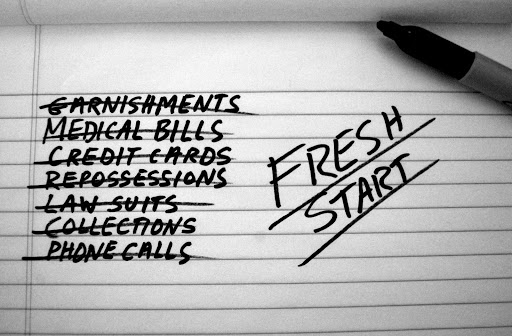 GARNISHMENTS
MEDICAL BILLS
CREDIT CARDS
REPOSSESSIONS
LAW SUITS
COLLECTIONS
PHONE CALLS
FRESH
START